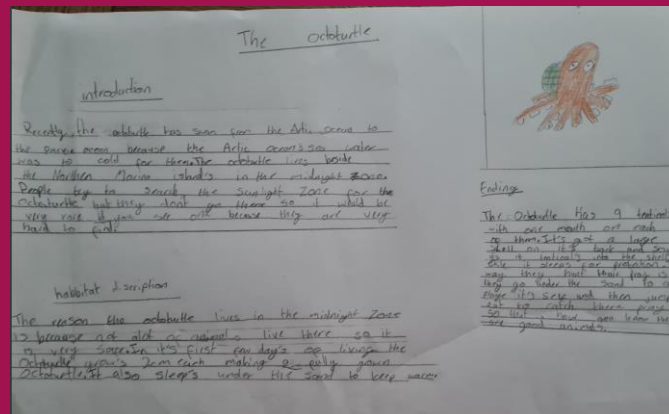 The octoturtle
introduction
Recently, the octoturtle has seen from the Artic ocean to
the ocean because the Artic ocean's sea water
was to cold for them. The octoturtle lives beside
the Northen Marine island's in the midnight zone.
People try to search the sunlight zone for the
octoturtle but they dont go there so it would be
very rare if you see one because they are very
hard to find.
habbitat discription
The reason the octoturtle lives in the midnight zone
is because not alot of animals live there so it
is very safe. In it's first few day's of living the
Octoturtle grow's 2cm each making a fully grown
Octoturtle. It also sleeps under the sand to keep
Ending
The Octoturtle Has 9 tentical
with one mouth on each
of them. It's got a large
shell on it's back and so
it into the shell
it sleeps for
way they hunt their is
they go under the sand to
it's and then
out to catch there
so that now you know the
are good animals.